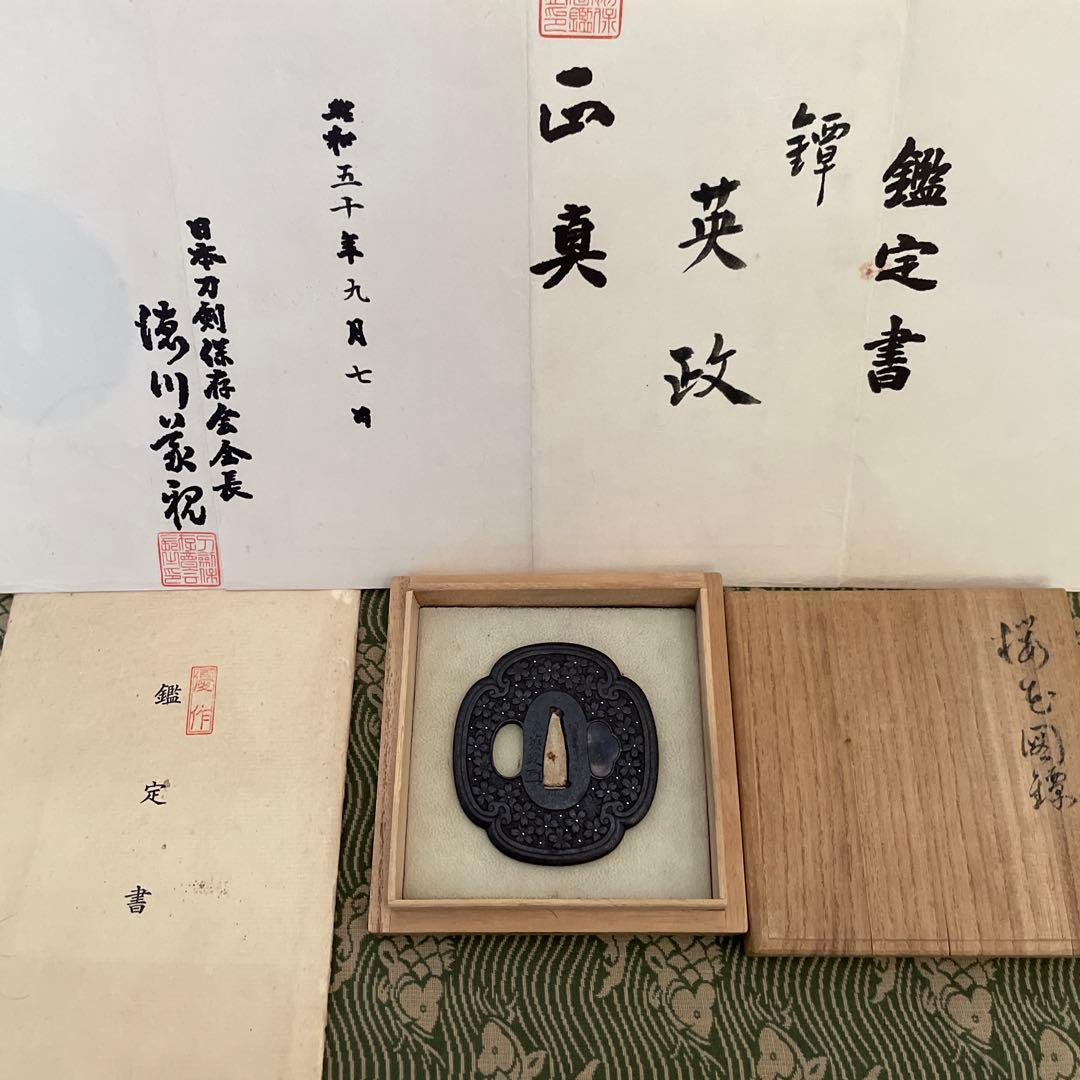 鑑定書
鐔
英政
正真
昭和五十年九月七日
日本刀剣保存会会長
徳川義親
鑑定書
優作
桜花図鐔